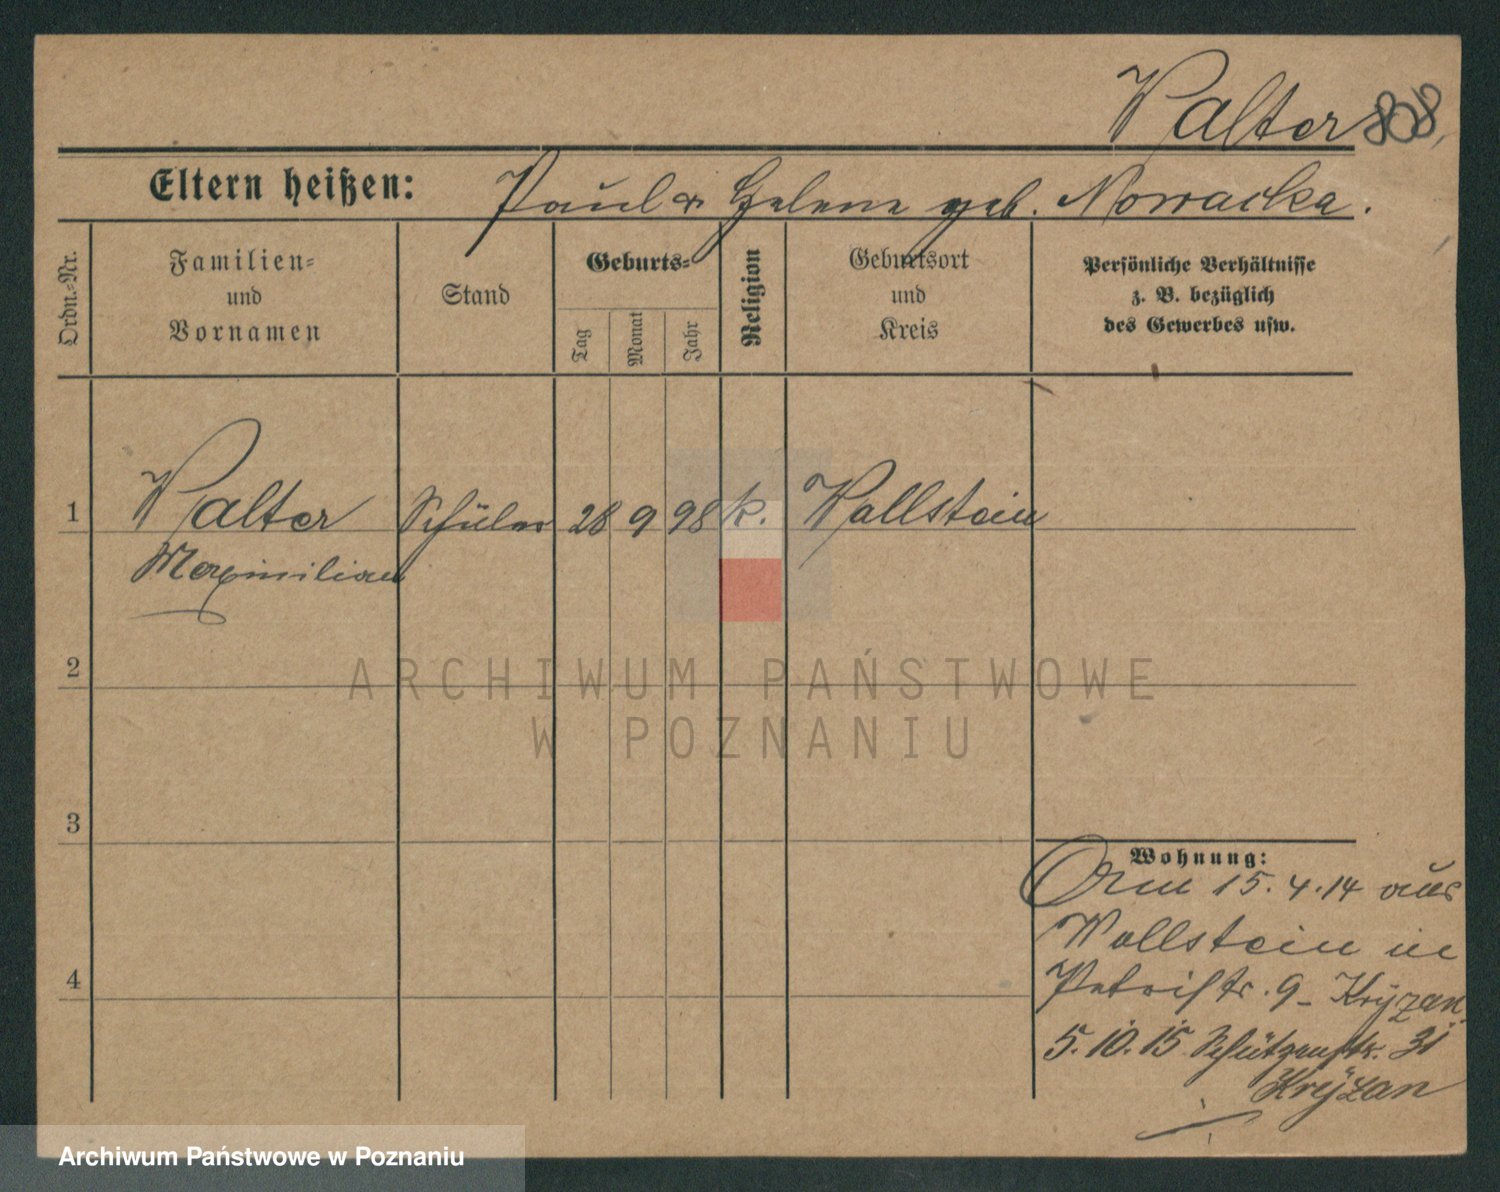 Walter 808,
Eltern heißen: Paul & Helene geb. Nowacka.
Ordn.=Nr.
Familien=
und
Vornamen
Stand
Geburts=
Tag
Monat
Jahr
Religion
Geburtsort
und
Kreis
Persönliche Verhältnisse
z. B. bezüglich
des Gewerbes usw.
1 Walter Schüler 28 9 98 k. Wollstein
Maximilian
2
3
4
ARCHIWUM PAŃSTWOWE
W POZNANIU
Wohnung:
Am 15.4.14 aus
Wollstein in
Petristr. 9 - Kryzan
5.10.15 Schützenstr. 31
Kryzan
Archiwum Państwowe w Poznaniu